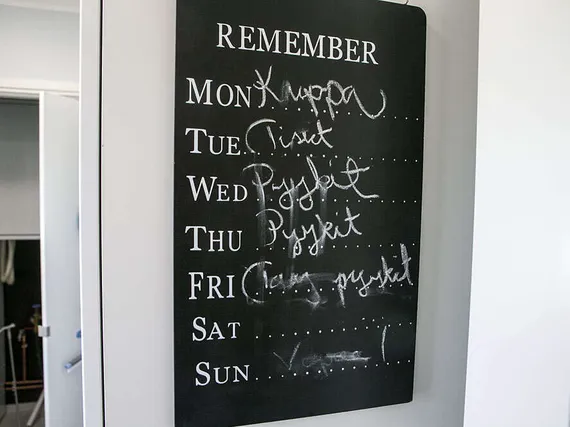 REMEMBER
MON Kauppa
TUE Tiskit
WED Pyykit
THU Pyykit
FRI pyykit
SAT
SUN